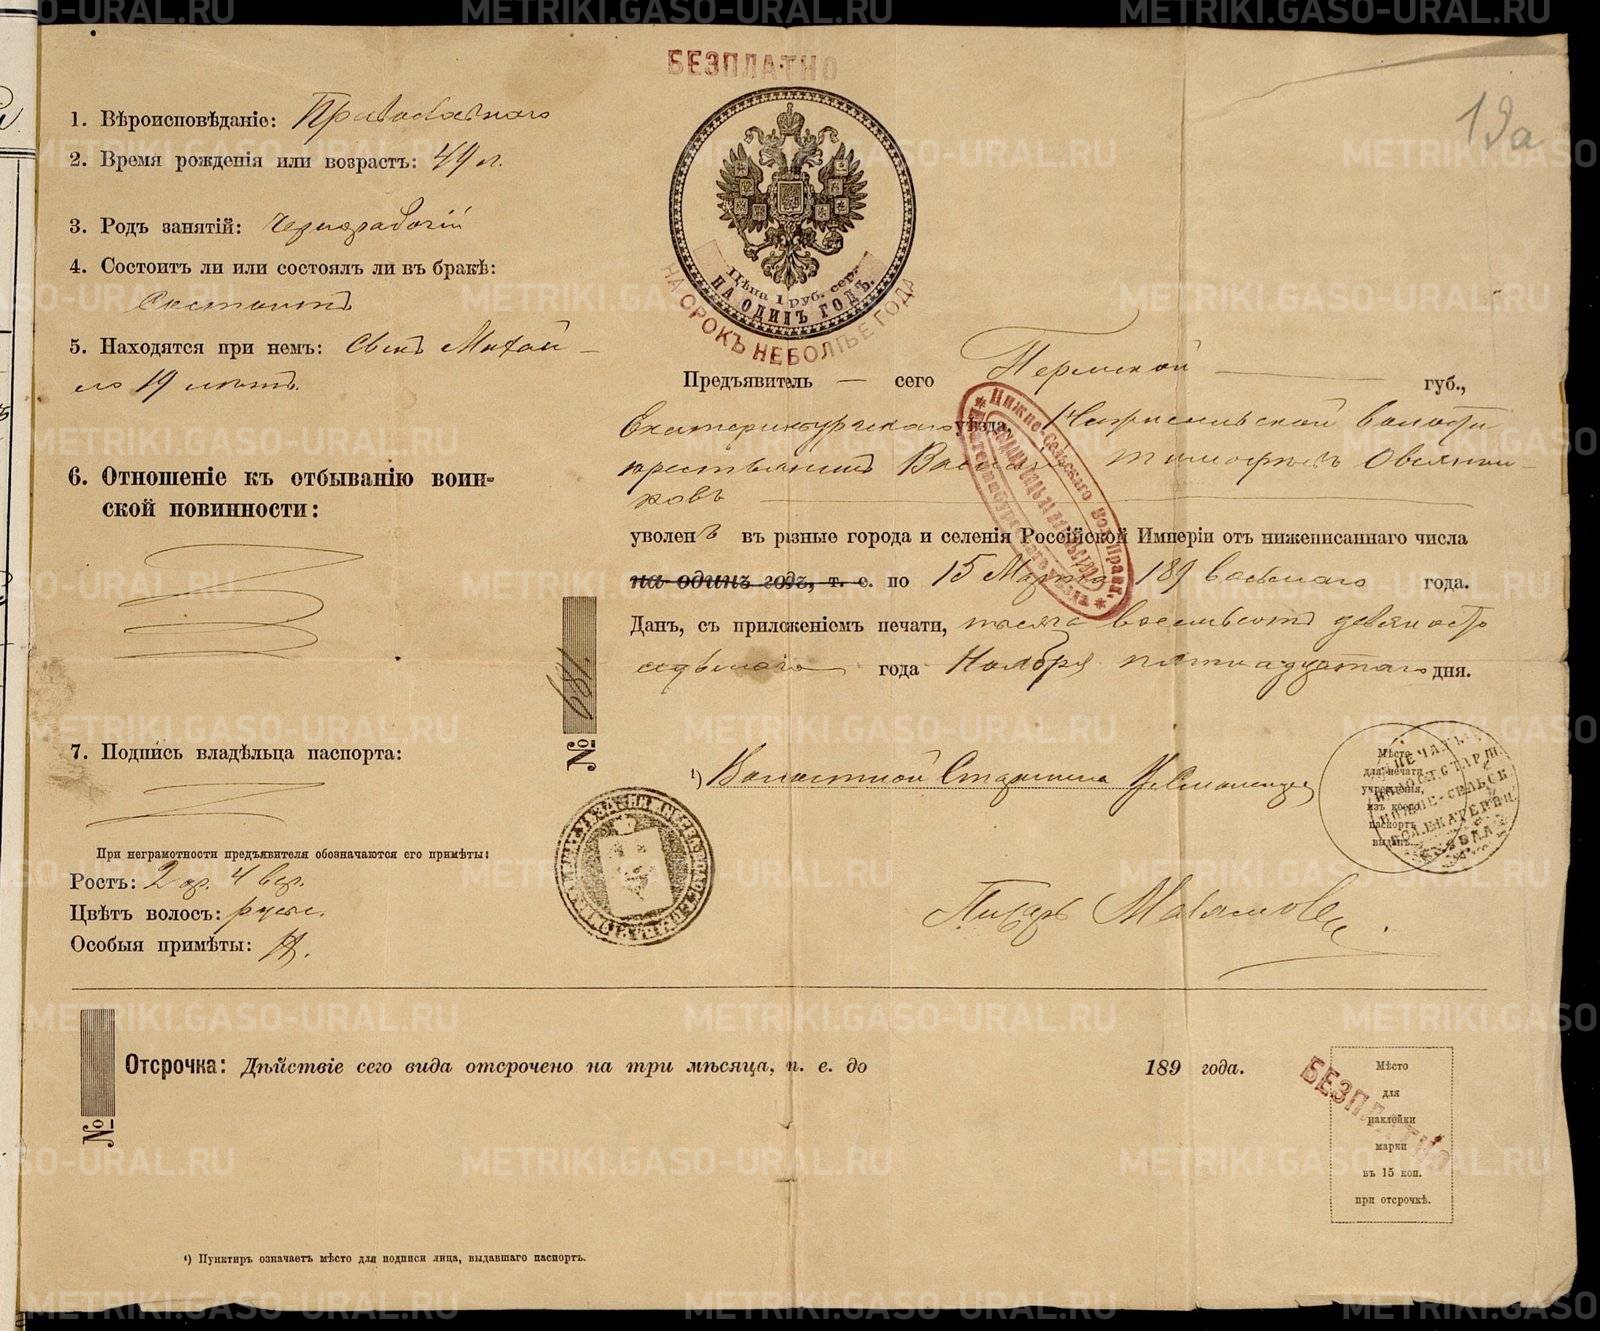 13а
БЕЗПЛАТНО
1. Вѣроисповѣданіе: Православнаго
2. Время рожденія или возрастъ: 49 л.
3. Родъ занятій: Чернорабочій
4. Состоитъ ли или состоялъ ли въ бракѣ:
Состоитъ
5. Находятся при немъ: Сынъ Михаи-
ло 19 лѣтъ
6. Отношеніе къ отбыванію воин-
ской повинности:
7. Подпись владѣльца паспорта:
При неграмотности предъявителя обозначаются его примѣты:
Ростъ: 2 ар. 4 вер.
Цвѣтъ волосъ: русые.
Особыя примѣты: Н.
Цѣна 1 руб. сер.
НА ОДИНЪ ГОДЪ.
НА СРОКЪ НЕБОЛѢЕ ГОДА
Предъявитель — сего Пермской губ.,
Екатеринбургскаго уѣзда, волости
крестьянинъ Тимофѣевъ Овсянни-
ковъ
уволенъ въ разные города и селенія Россійской Имперіи отъ нижеписаннаго числа
на одинъ годъ, т. е. по 15 Марта 189 восьмаго года.
Данъ, съ приложеніемъ печати, тысяча восемьсотъ девяносто
седьмаго года Ноября пятнадцатаго дня.
№ 681.
¹) Волостной Старшина
Мѣсто
для печати
учрежденія,
изъ коего
паспортъ
выданъ.
Писарь
Отсрочка: Дѣйствіе сего вида отсрочено на три мѣсяца, т. е. до 189 года.
№
БЕЗПЛАТНО
Мѣсто
для
наклейки
марки
въ 15 коп.
при отсрочкѣ.
¹) Пунктиръ означаетъ мѣсто для подписи лица, выдавшаго паспортъ.
METRIKI.GASO-URAL.RU